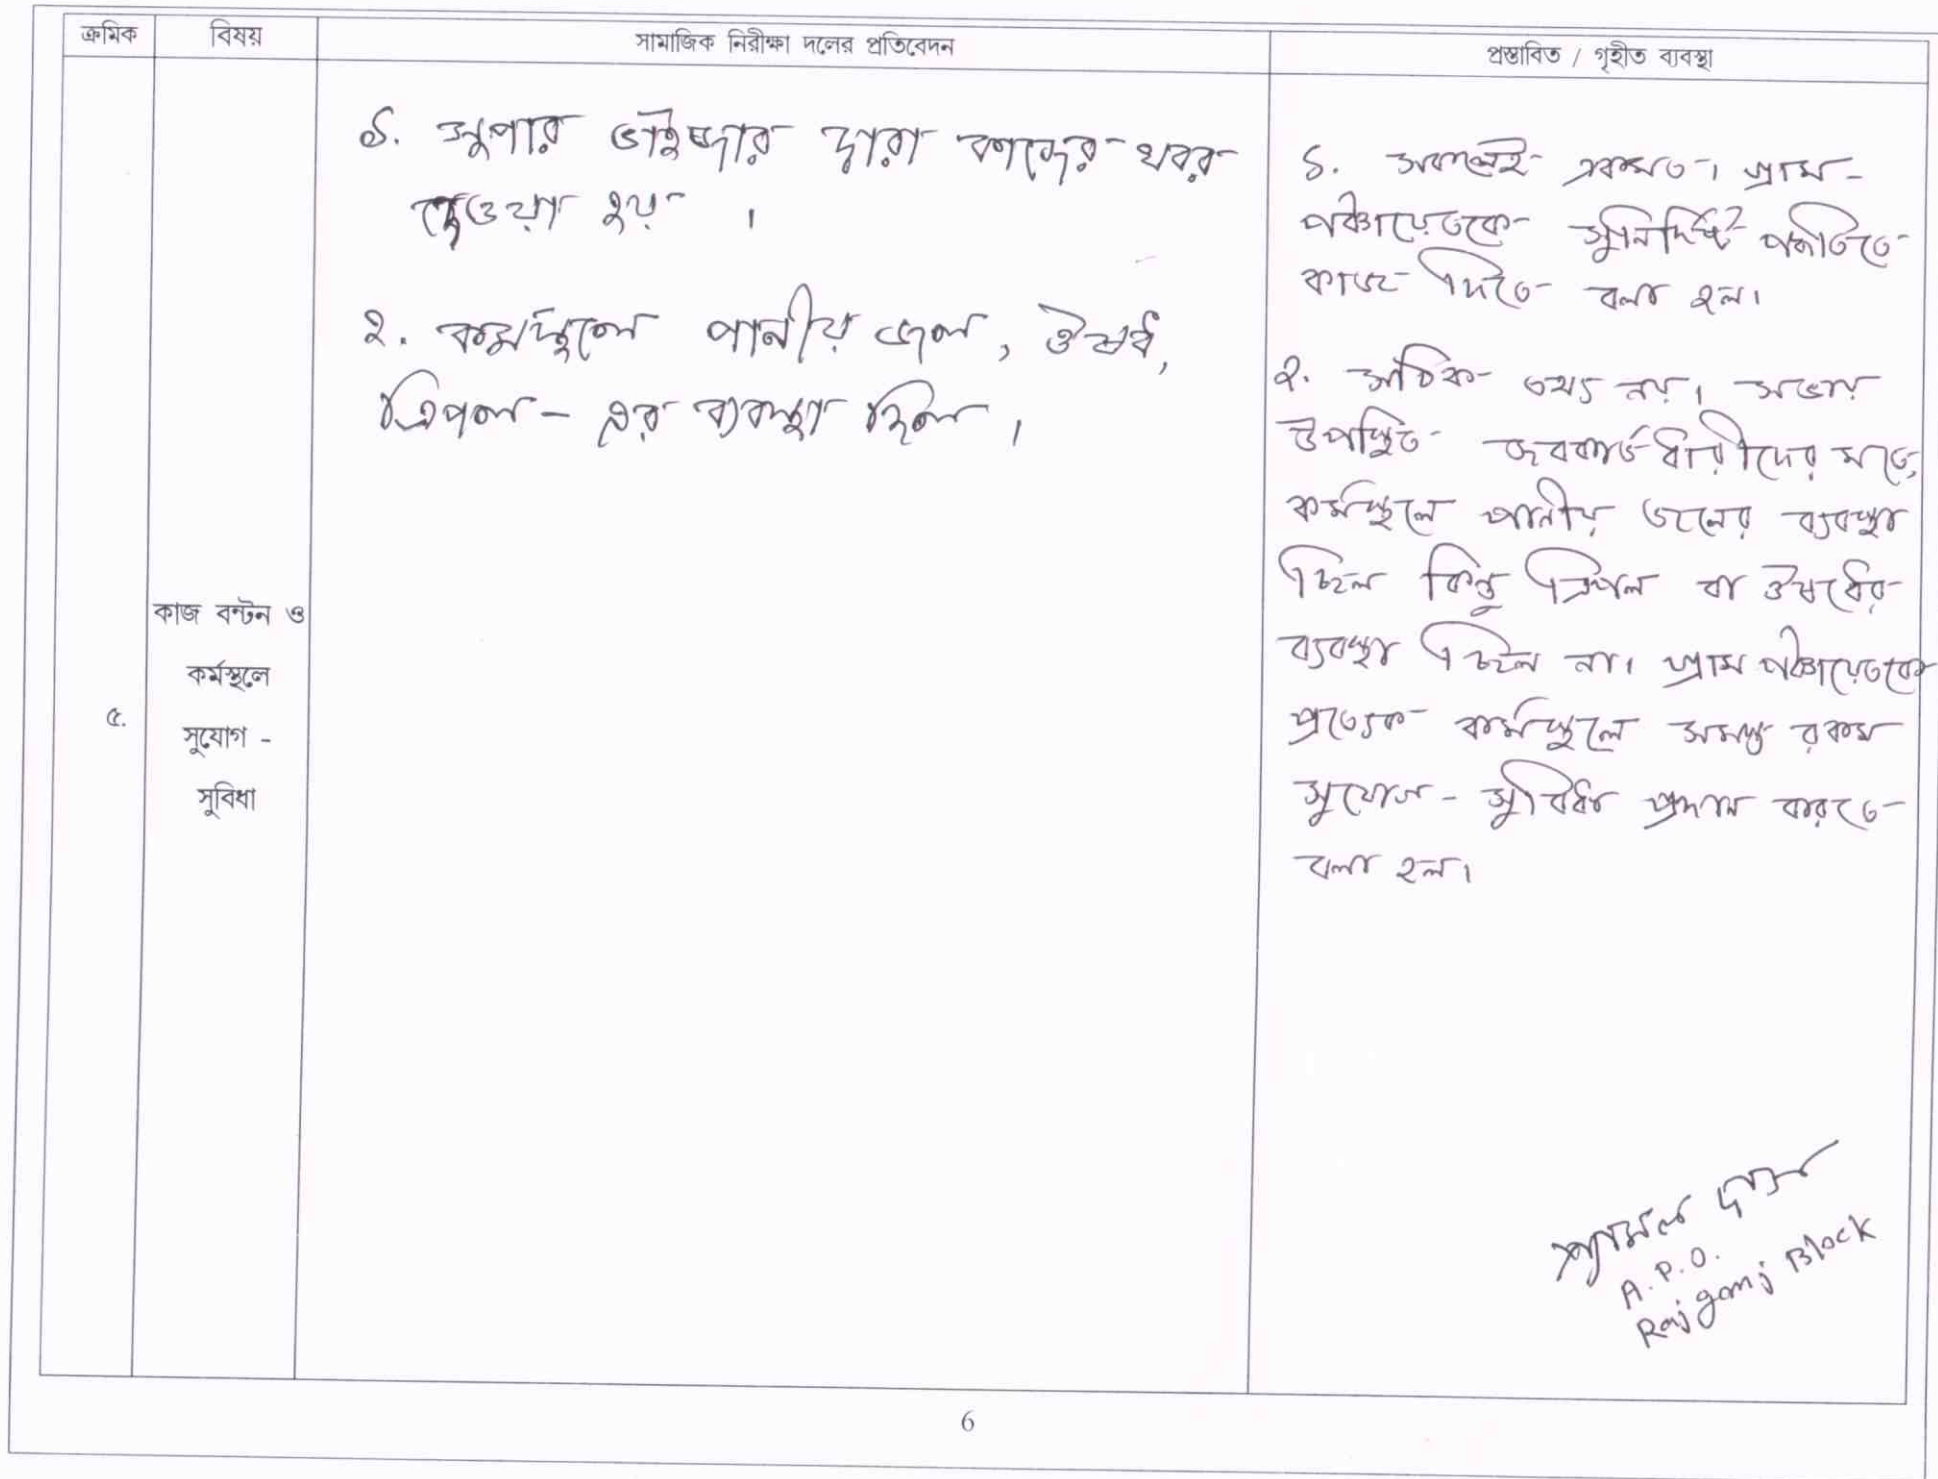 ক্রমিক বিষয় সামাজিক নিরীক্ষা দলের প্রতিবেদন প্রস্তাবিত / গৃহীত ব্যবস্থা
১. সুপার ভাইজার দ্বারা কাজের খবর
দেওয়া হয় ।
২. কর্মস্থলে পানীয় জল, ঔষধ,
ত্রিপল - এর ব্যবস্থা ছিল ।
৫.
কাজ বন্টন ও
কর্মস্থলে
সুযোগ -
সুবিধা
১. সকলেই একমত। গ্রাম-
পঞ্চায়েতকে সুনির্দিষ্ট পদ্ধতিতে
কাজ দিতে বলা হল।
২. সঠিক তথ্য নয়। সভায়
উপস্থিত জবকার্ডধারীদের মতে,
কর্মস্থলে পানীয় জলের ব্যবস্থা
ছিল কিন্তু ত্রিপল বা ঔষধের
ব্যবস্থা ছিল না। গ্রাম পঞ্চায়েতকে
প্রত্যেক কর্মস্থলে সমস্ত রকম
সুযোগ - সুবিধা প্রদান করতে
বলা হল।
শ্যামল দাস
A.P.O.
Rajganj Block
6